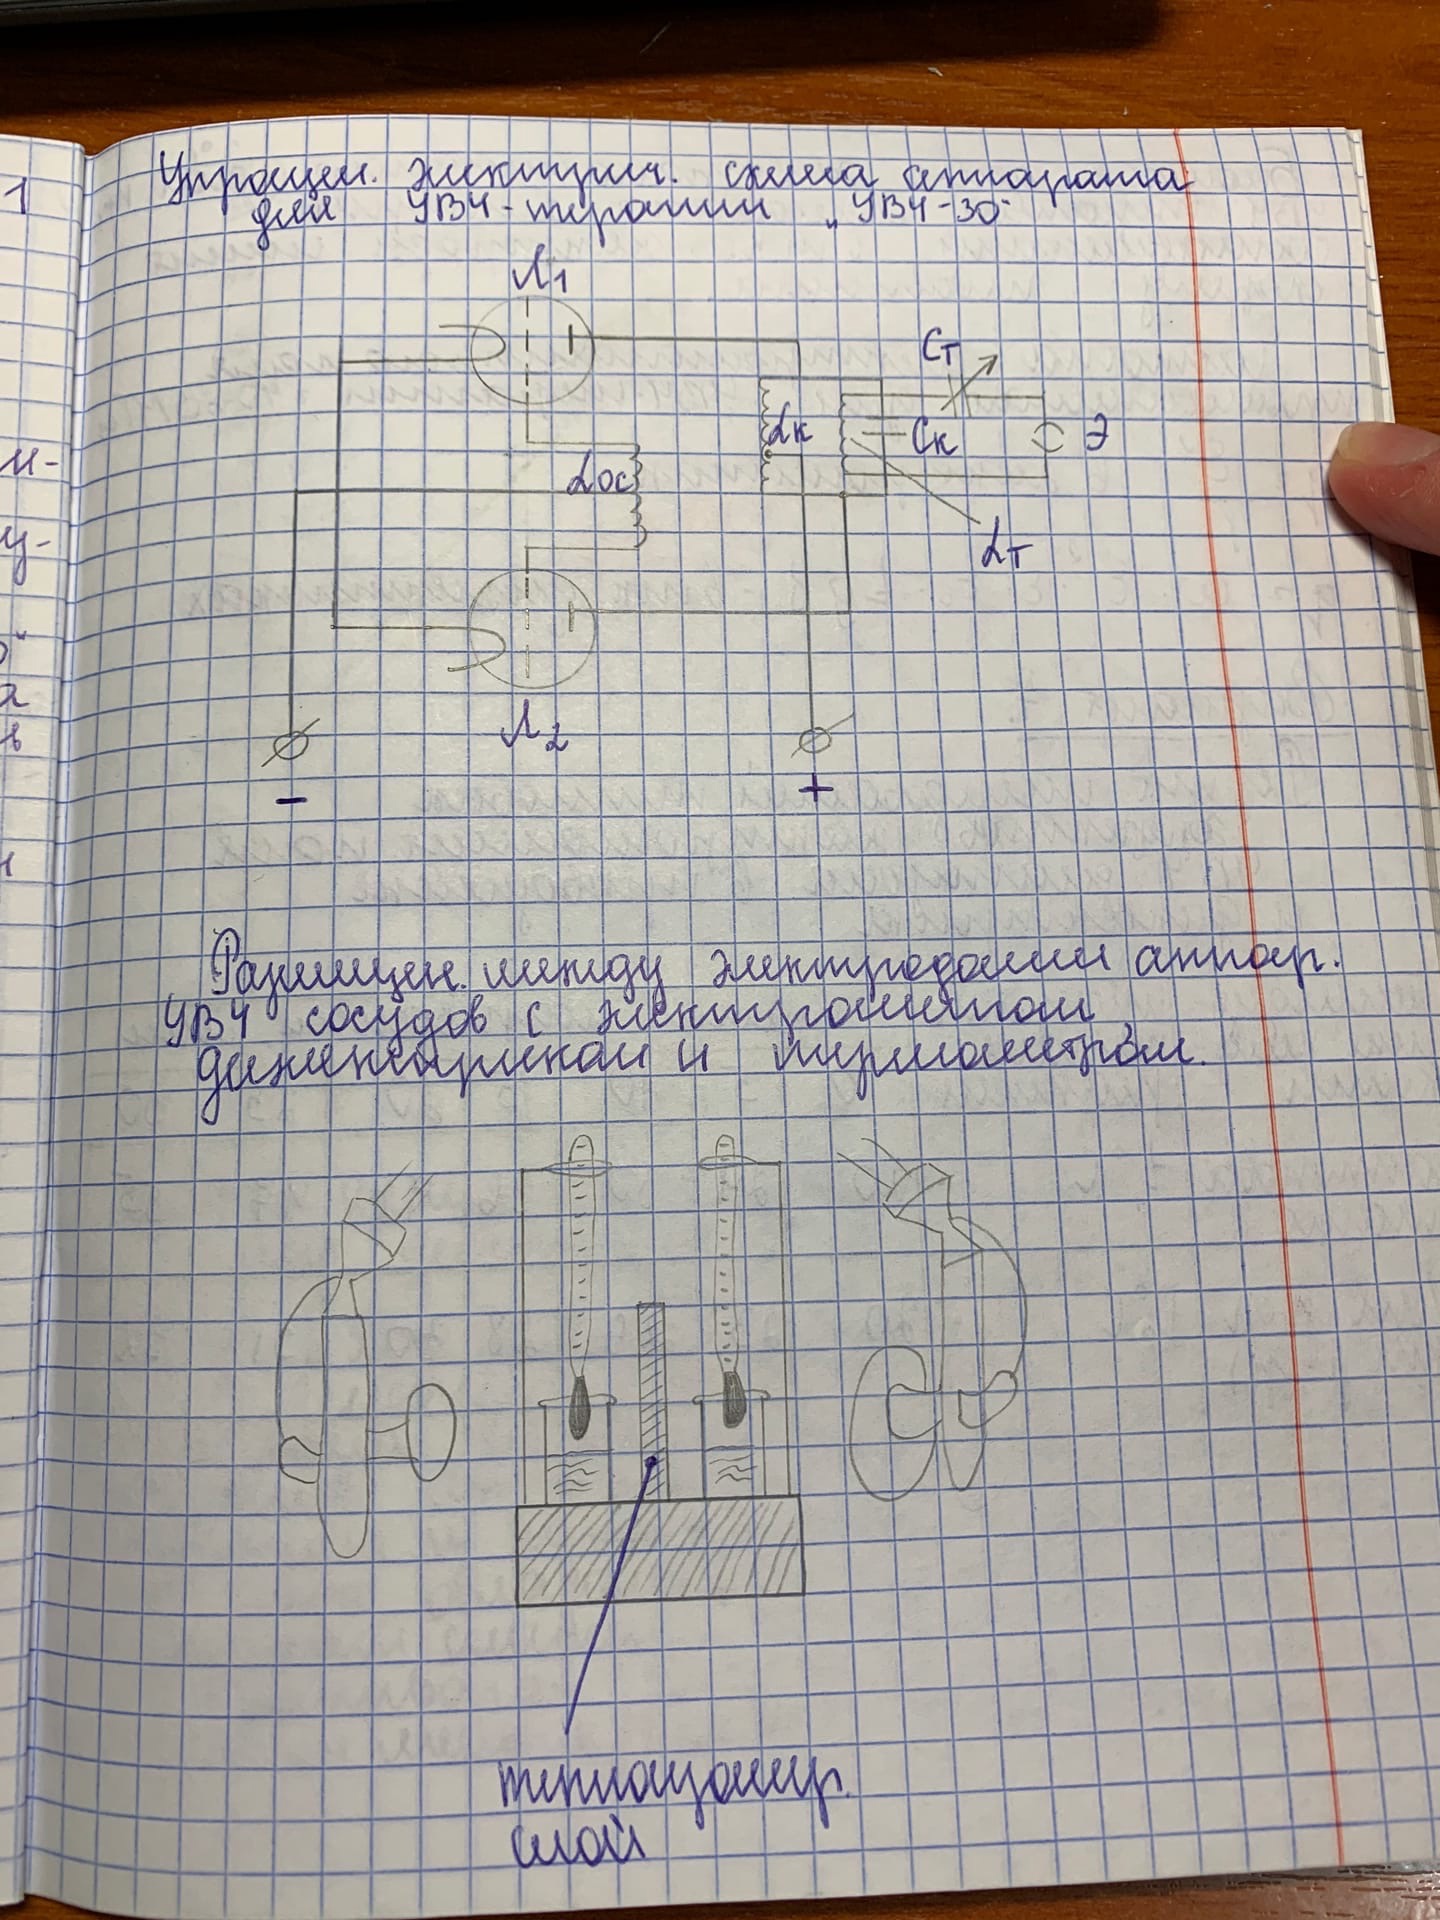 Упрощен. электрич. схема аппарата
для УВЧ-терапии „УВЧ-30"
Л1
Ст
Lк
Ск
Э
Lос
Lт
Л2
-
+
Размещен. между электродами аппар.
УВЧ сосудов с электролитом,
диэлектриком и термометром.
теплоизолир.
слой
1
и-
у-